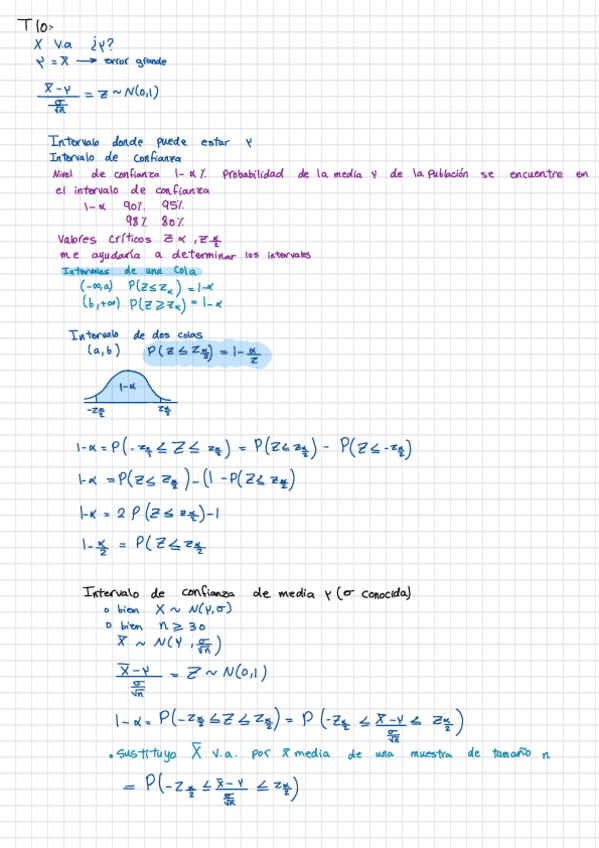 T10:
X v.a ¿μ?
μ = x̄ → error grande
(X̄-μ)/(σ/√n) = Z ~ N(0,1)
Intervalo donde puede estar μ
Intervalo de confianza
Nivel de confianza 1-α%. Probabilidad de la media μ de la Población se encuentre en
el intervalo de confianza
1-α 90% 95%
98% 80%
Valores críticos Zα, Zα/2
me ayudaría a determinar los intervalos
Intervalos de una cola
(-∞,a) P(Z≤Zα) = 1-α
(b,+∞) P(Z≥Zα) = 1-α
Intervalo de dos colas
(a,b) P(Z ≤ Zα/2) = 1-α/2
1-α
-Zα/2 Zα/2
1-α = P(-Zα/2 ≤ Z ≤ Zα/2) = P(Z≤Zα/2) - P(Z≤-Zα/2)
1-α = P(Z≤Zα/2) - (1-P(Z≤Zα/2)
1-α = 2P(Z≤Zα/2)-1
1-α/2 = P(Z≤Zα/2
Intervalo de confianza de media μ (σ conocida)
o bien X ~ N(μ,σ)
o bien n ≥ 30
X̄ ~ N(μ, σ/√n)
(X̄-μ)/(σ/√n) = Z ~ N(0,1)
1-α = P(-Zα/2 ≤ Z ≤ Zα/2) = P(-Zα/2 ≤ (X̄-μ)/(σ/√n) ≤ Zα/2)
• sustituyo X̄ v.a. por x̄ media de una muestra de tamaño n
= P(-Zα/2 ≤ (x̄-μ)/(σ/√n) ≤ Zα/2)